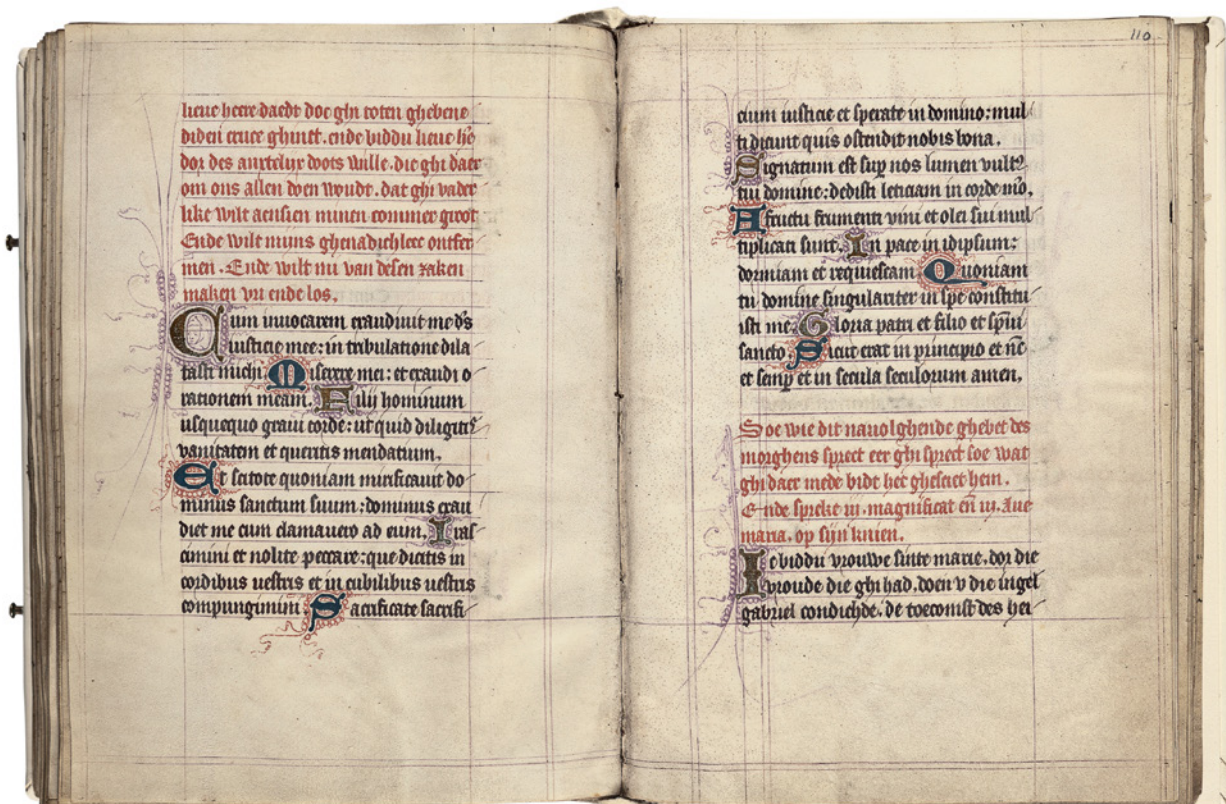 lieue heere daedt doe ghi toten ghebene
diden cruce ghinct. ende biddu lieue he
dor des anxtelijx doots wille. die ghi daer
om ons allen doen woudt. dat ghi vader
like wilt aensien minen commer groot
Ende wilt mijns ghenadichleec ontfer
men. Ende wilt mi van desen zaken
maken vri ende los.
Cum inuocarem exaudiuit me ds
iusticie mee: in tribulatione dila
tasti michi. Miserere mei: et exaudi o
rationem meam. Filij hominum
usquequo graui corde: ut quid diligitis
vanitatem et queritis mendatium.
Et scitote quoniam mirificauit do
minus sanctum suum: dominus exau
diet me cum clamauero ad eum. Iras
cimini et nolite peccare: que dicitis in
cordibus uestris et in cubilibus uestris
compungimini Sacrificate sacrifi
110
cium iusticie et sperate in domino: mul
ti dicunt quis ostendit nobis bona.
Signatum est sup nos lumen vultꝰ
tui domine: dedisti leticiam in corde mo.
A fructu frumenti vini et olei sui mul
tiplicati sunt. In pace in idipsum:
dormiam et requiescam Quoniam
tu domine singulariter in spe constitu
isti me. Gloria patri et filio et spui
sancto. Sicut erat in principio et nc
et semp et in secula seculorum amen.
Soe wie dit nauolghende ghebet des
morghens sprect eer ghi sprect soe wat
ghi daer mede bidt het ghesciet hem.
Ende spreke iij. magnificat en iij. Aue
maria. op sijn knien.
Ic biddu vrouwe sinte marie. dor die
vroude die ghi had. doen v die ingel
gabriel condichde. de toecomst des hei